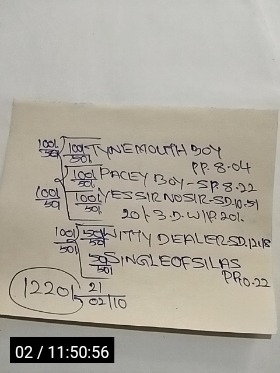 100l/50l 100l/50l TYNEMOUTH BOY
PP. 8.04
100l/50l PACEY BOY - SP. 8.22
100l/50l 100l/50l YES SIR NO SIR - SD.10.51
20l - 3. D. W/P 20l.
100l/50l 50l/50l WITTY DEALER SD.12.18
50l/50l SINGLEOFSILAS
PP.0.22
1220l 21
02/10
02 / 11:50:56